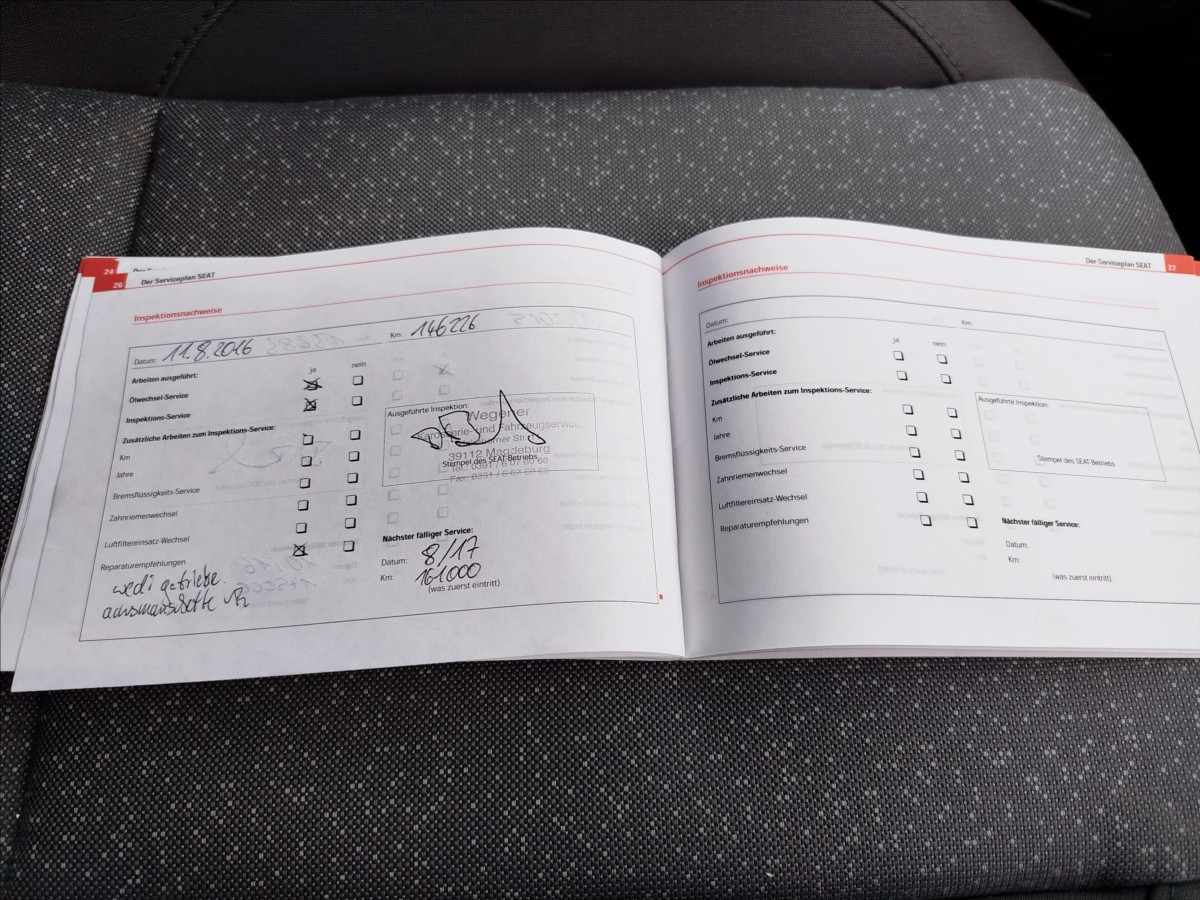 24
26
Der Serviceplan SEAT
Inspektionsnachweise
Datum: 11.8.2016
Km: 146226
Arbeiten ausgeführt:
ja
nein
Ölwechsel-Service
Inspektions-Service
Zusätzliche Arbeiten zum Inspektions-Service:
Km
Jahre
Bremsflüssigkeits-Service
Zahnriemenwechsel
Luftfiltereinsatz-Wechsel
Reparaturempfehlungen
wedi getriebe.
Ausgeführte Inspektion:
Wegener
Karosserie- und Fahrzeugservice
39112 Magdeburg
Stempel des SEAT Betriebs
Tel.: 0391 / 6 07 60 68
Fax: 0391 / 6 07 60 69
Nächster fälliger Service:
Datum: 8/17
Km: 161000
(was zuerst eintritt)
Der Serviceplan SEAT
27
Inspektionsnachweise
Datum:
Km:
Arbeiten ausgeführt:
ja
nein
Ölwechsel-Service
Inspektions-Service
Zusätzliche Arbeiten zum Inspektions-Service:
Km
Jahre
Bremsflüssigkeits-Service
Zahnriemenwechsel
Luftfiltereinsatz-Wechsel
Reparaturempfehlungen
Ausgeführte Inspektion:
Stempel des SEAT Betriebs
Nächster fälliger Service:
Datum:
Km:
(was zuerst eintritt)